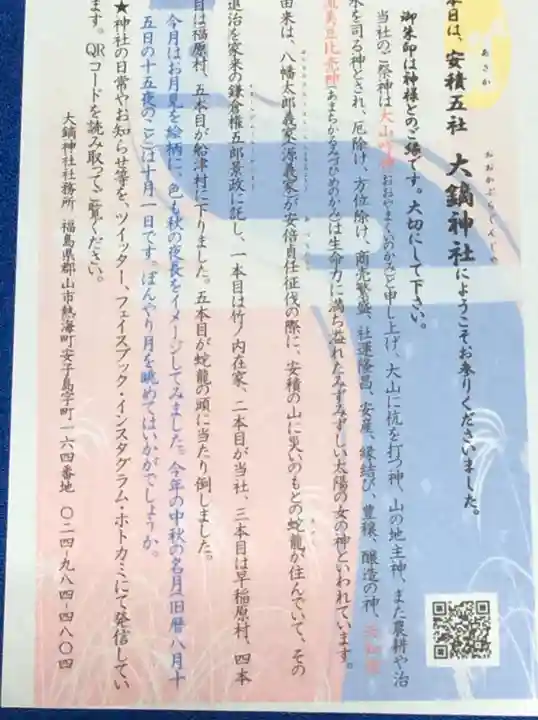 本日は、安積五社 大鏑神社にようこそお参りくださいました。
あさか おおかぶらじんじゃ
御朱印は神様とのご縁です。大切にして下さい。
当社のご祭神は大山咋神(おおやまくいのかみ)と申し上げ、大山に杭を打つ神、山の地主神、また農耕や治
水を司る神とされ、厄除け、方位除け、商売繁盛、社運隆昌、安産、縁結び、豊穣、醸造の神、天知迦
流美豆比売神(あまちかるみづひめのかみ)は生命力に満ち溢れたみずみずしい太陽の女の神といわれています。
由来は、八幡太郎義家(源義家)が安倍貞任征伐の際に、安積の山に災いのもとの蛇龍が住んでいて、その
退治を家来の鎌倉権五郎景政に託し、一本目は竹ノ内在家、二本目が当社、三本目は早稲原村、四本
目は福原村、五本目が船津村に下りました。五本目が蛇龍の頭に当たり倒しました。
今月はお月見を絵柄に、色も秋の夜長をイメージしてみました。今年の中秋の名月(旧暦八月十
五日の十五夜のこと)は十月一日です。ぼんやり月を眺めてはいかがでしょうか。
★神社の日常やお知らせ等を、ツイッター、フェイスブック・インスタグラム・ホトカミにて発信してい
ます。QRコードを読み取ってご覧ください。
大鏑神社社務所 福島県郡山市熱海町安子島字町一六四番地 〇二四-九八四-四八〇四